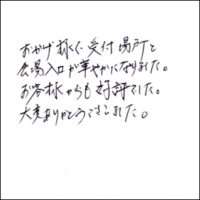 おかげ様で受付場所と
会場入口が華やかになりました。
お客様からも好評でした。
大変ありがとうございました。